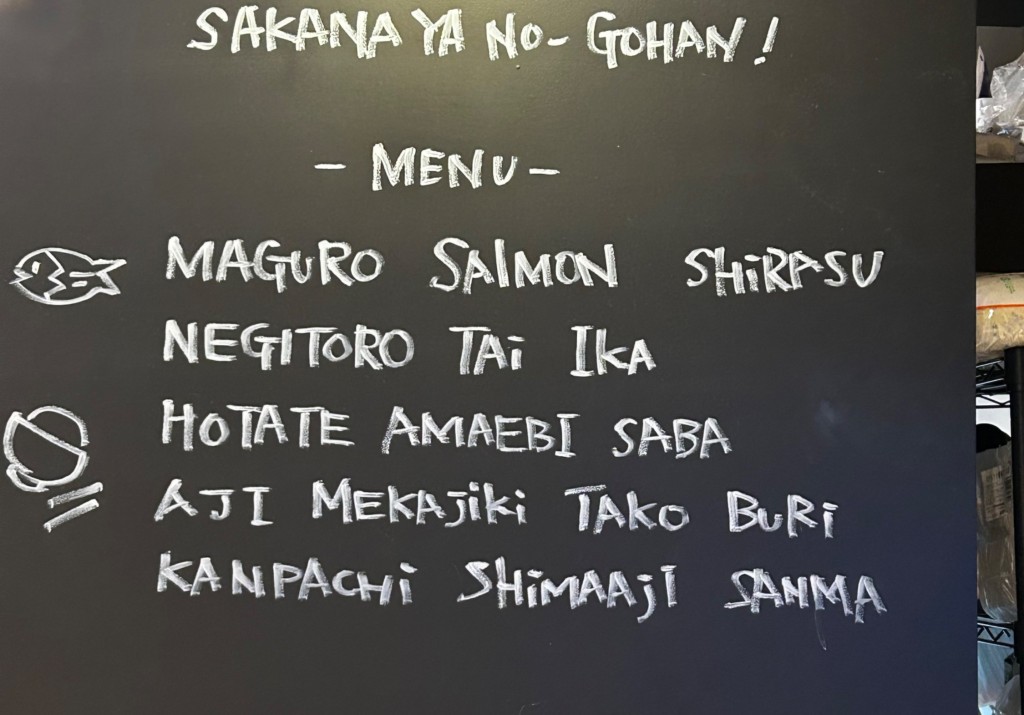 SAKANA YA NO- GOHAN!
- MENU -
MAGURO SAlMON SHiRASU
NEGITORO TAi IKA
HOTATE AMAEBI SABA
AJI MEKAJiKi TAKO BURi
KANPACHi SHiMAAJI SANMA